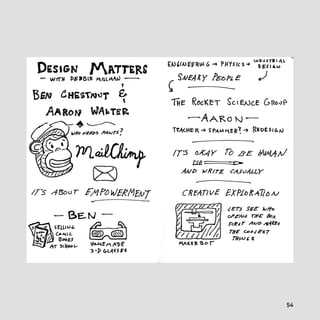 DESIGN MATTERS
— WITH DEBBIE MILLMAN —
BEN CHESTNUT &
AARON WALTER
WHO NEEDS PANTS?
MailChimp
IT'S ABOUT EMPOWERMENT
— BEN —
SELLING
COMIC
BOOKS
AT SCHOOL
HOMEMADE
3-D GLASSES
ENGINEERING → PHYSICS → INDUSTRIAL
DESIGN
SNEAKY PEOPLE
THE ROCKET SCIENCE GROUP
— AARON —
TEACHER → SPAMMER? → REDESIGN
IT'S OKAY TO BE HUMAN
AND WRITE CASUALLY
CREATIVE EXPLORATION
MAKERBOT
LETS SEE WHO
OPENS THE BOX
FIRST AND MAKES
THE COOLEST
THINGS
54